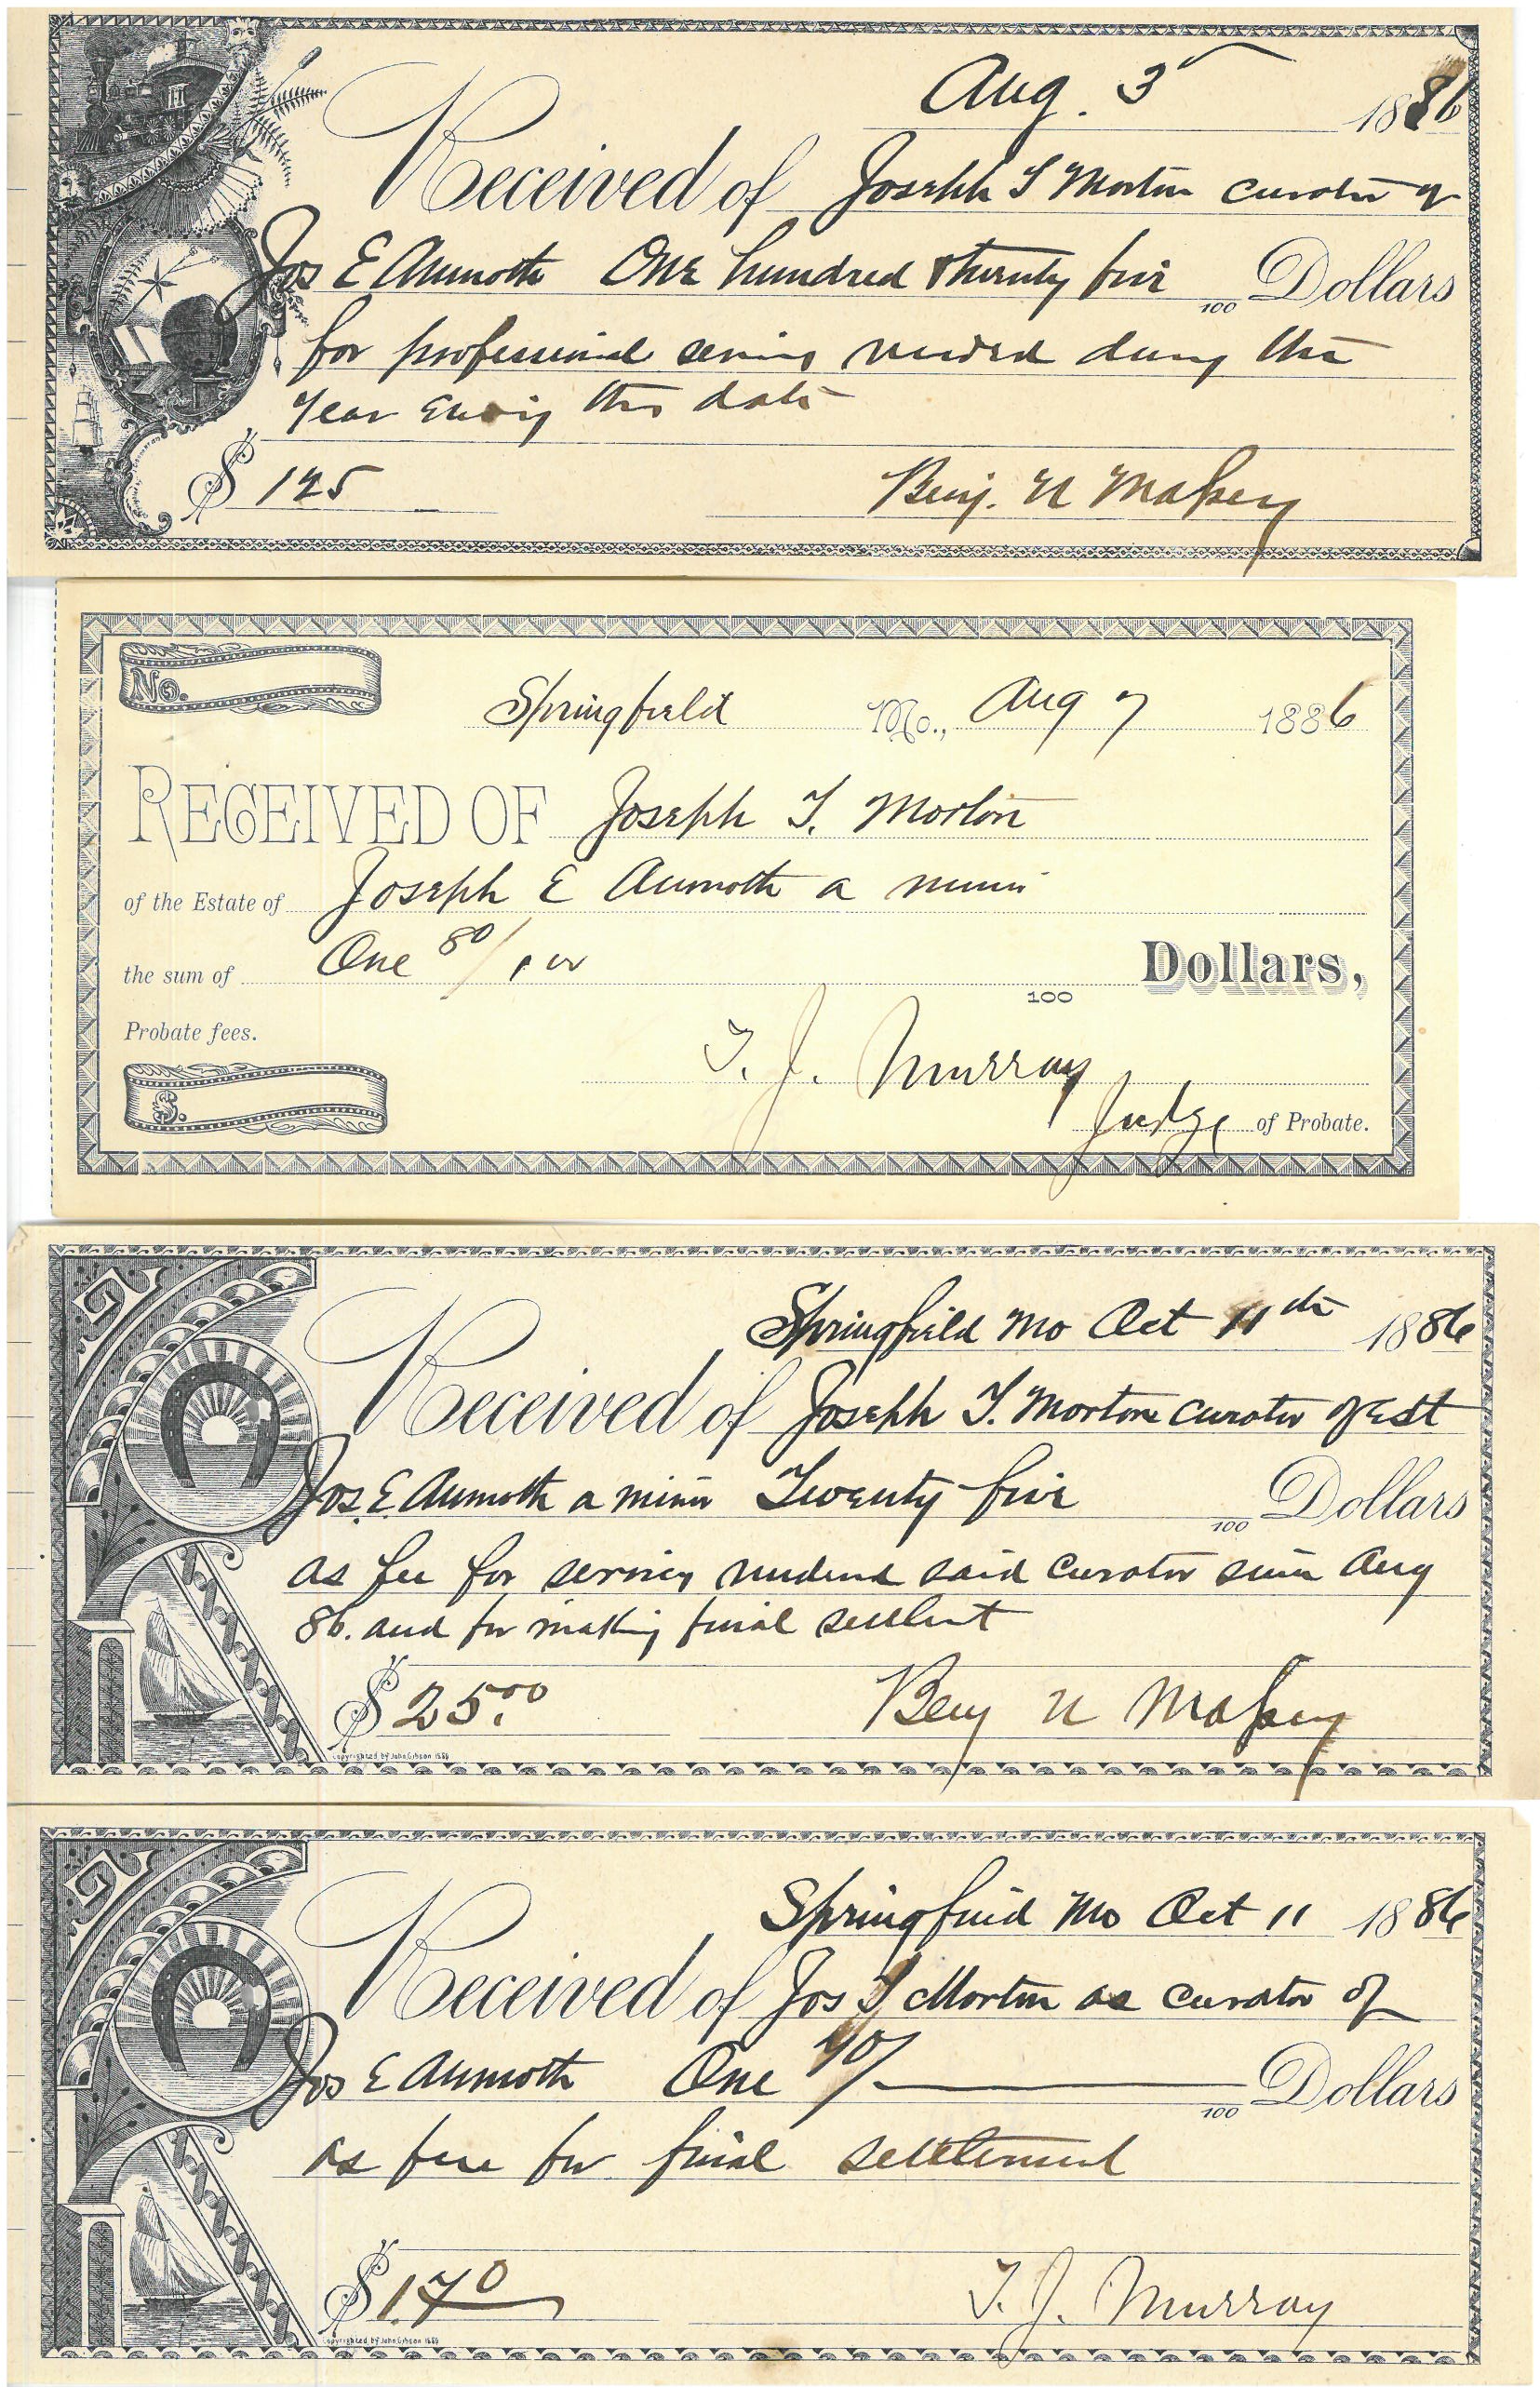 Aug. 3 1886
Received of Joseph T Morton curator of
Jos E Aumoth One hundred & twenty five 100 Dollars
for professional services during the
Year this date
$ 125 Benj. U Massey
No.
Springfield Mo., Aug 7 1886
RECEIVED OF Joseph T. Morton
of the Estate of Joseph E Aumoth a minor
the sum of One 80/100 100 Dollars,
Probate fees.
T. J. Murray
$. Judge of Probate.
Springfield Mo Oct 11th 1886
Received of Joseph T. Morton curator of Est
Jos. E. Aumoth a minor Twenty five 100 Dollars
as fee for services said Curator since Aug
86. and for making final
$ 25.00 Benj U Massey
Copyrighted by John Gibson 1880
Springfield Mo Oct 11 1886
Received of Jos T Morton as curator of
Jos E Aumoth One 70/ 100 Dollars
as fee for final settlement
$ 1.70 T. J. Murray
Copyrighted by John Gibson 1880